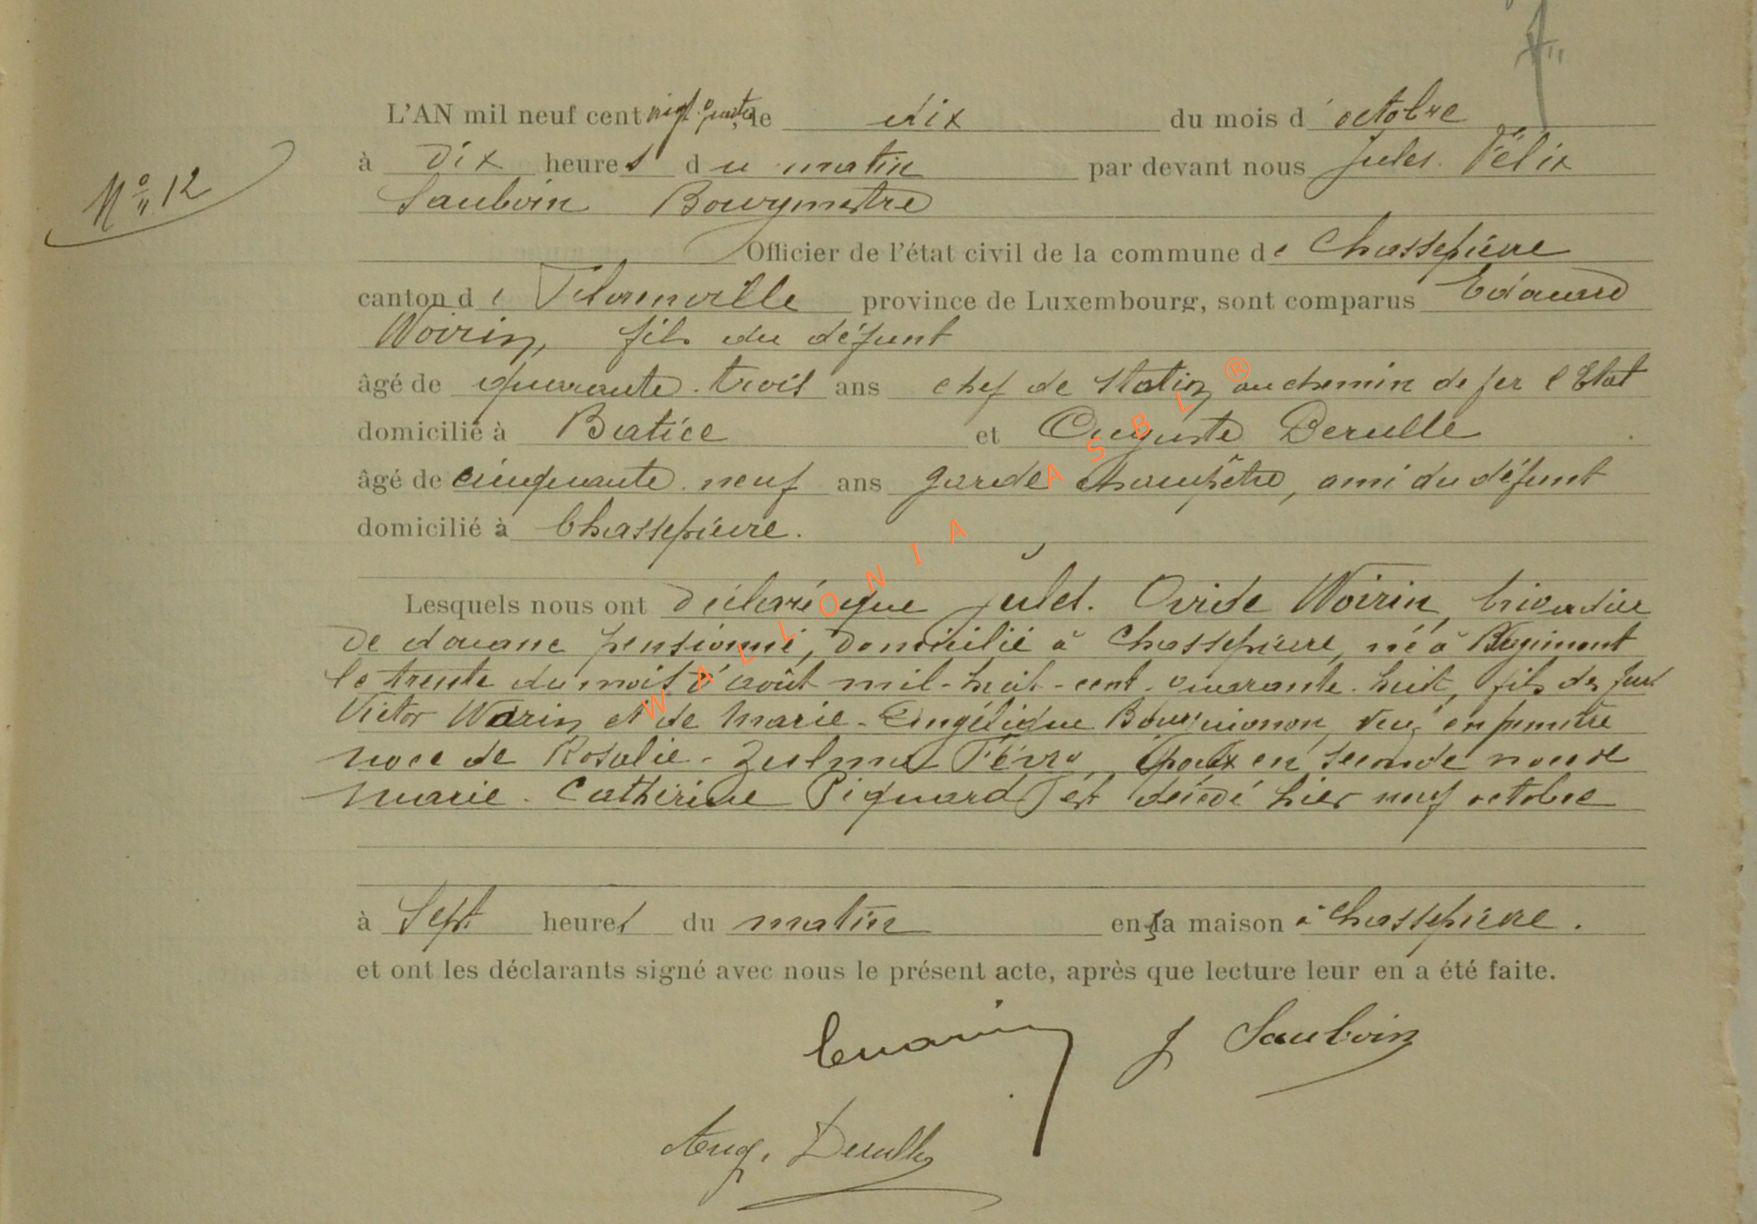 L'AN mil neuf cent vingt-quatre, le dix du mois d'octobre
N° 12
à dix heures du matin par devant nous Jules Félix
Sauboin Bourgmestre
Officier de l'état civil de la commune de Chassepierre
canton de Florenville province de Luxembourg, sont comparus Edouard
Woirin, fils du défunt
âgé de quarante-trois ans chef de station au chemin de fer l'Etat
domicilié à Battice et Auguste Derulle
âgé de cinquante-neuf ans garde champêtre, ami du défunt
domicilié à Chassepierre.
Lesquels nous ont déclaré que Jules-Ovide Woirin, brigadier
de douane pensionné, domicilié à Chassepierre, né à
le trente du mois d'août mil-huit-cent-quarante-huit, fils de feu
Victor Woirin et de Marie-Angélique Bourguignon, veuf en première
noce de Rosalie-Zulma époux en seconde noce de
Marie-Catherine Piquard est décédé hier neuf octobre
à Sept heures du matin en sa maison à Chassepierre.
et ont les déclarants signé avec nous le présent acte, après que lecture leur en a été faite.
J Sauboin
Aug. Derulle
WALLONIA ASBL ®